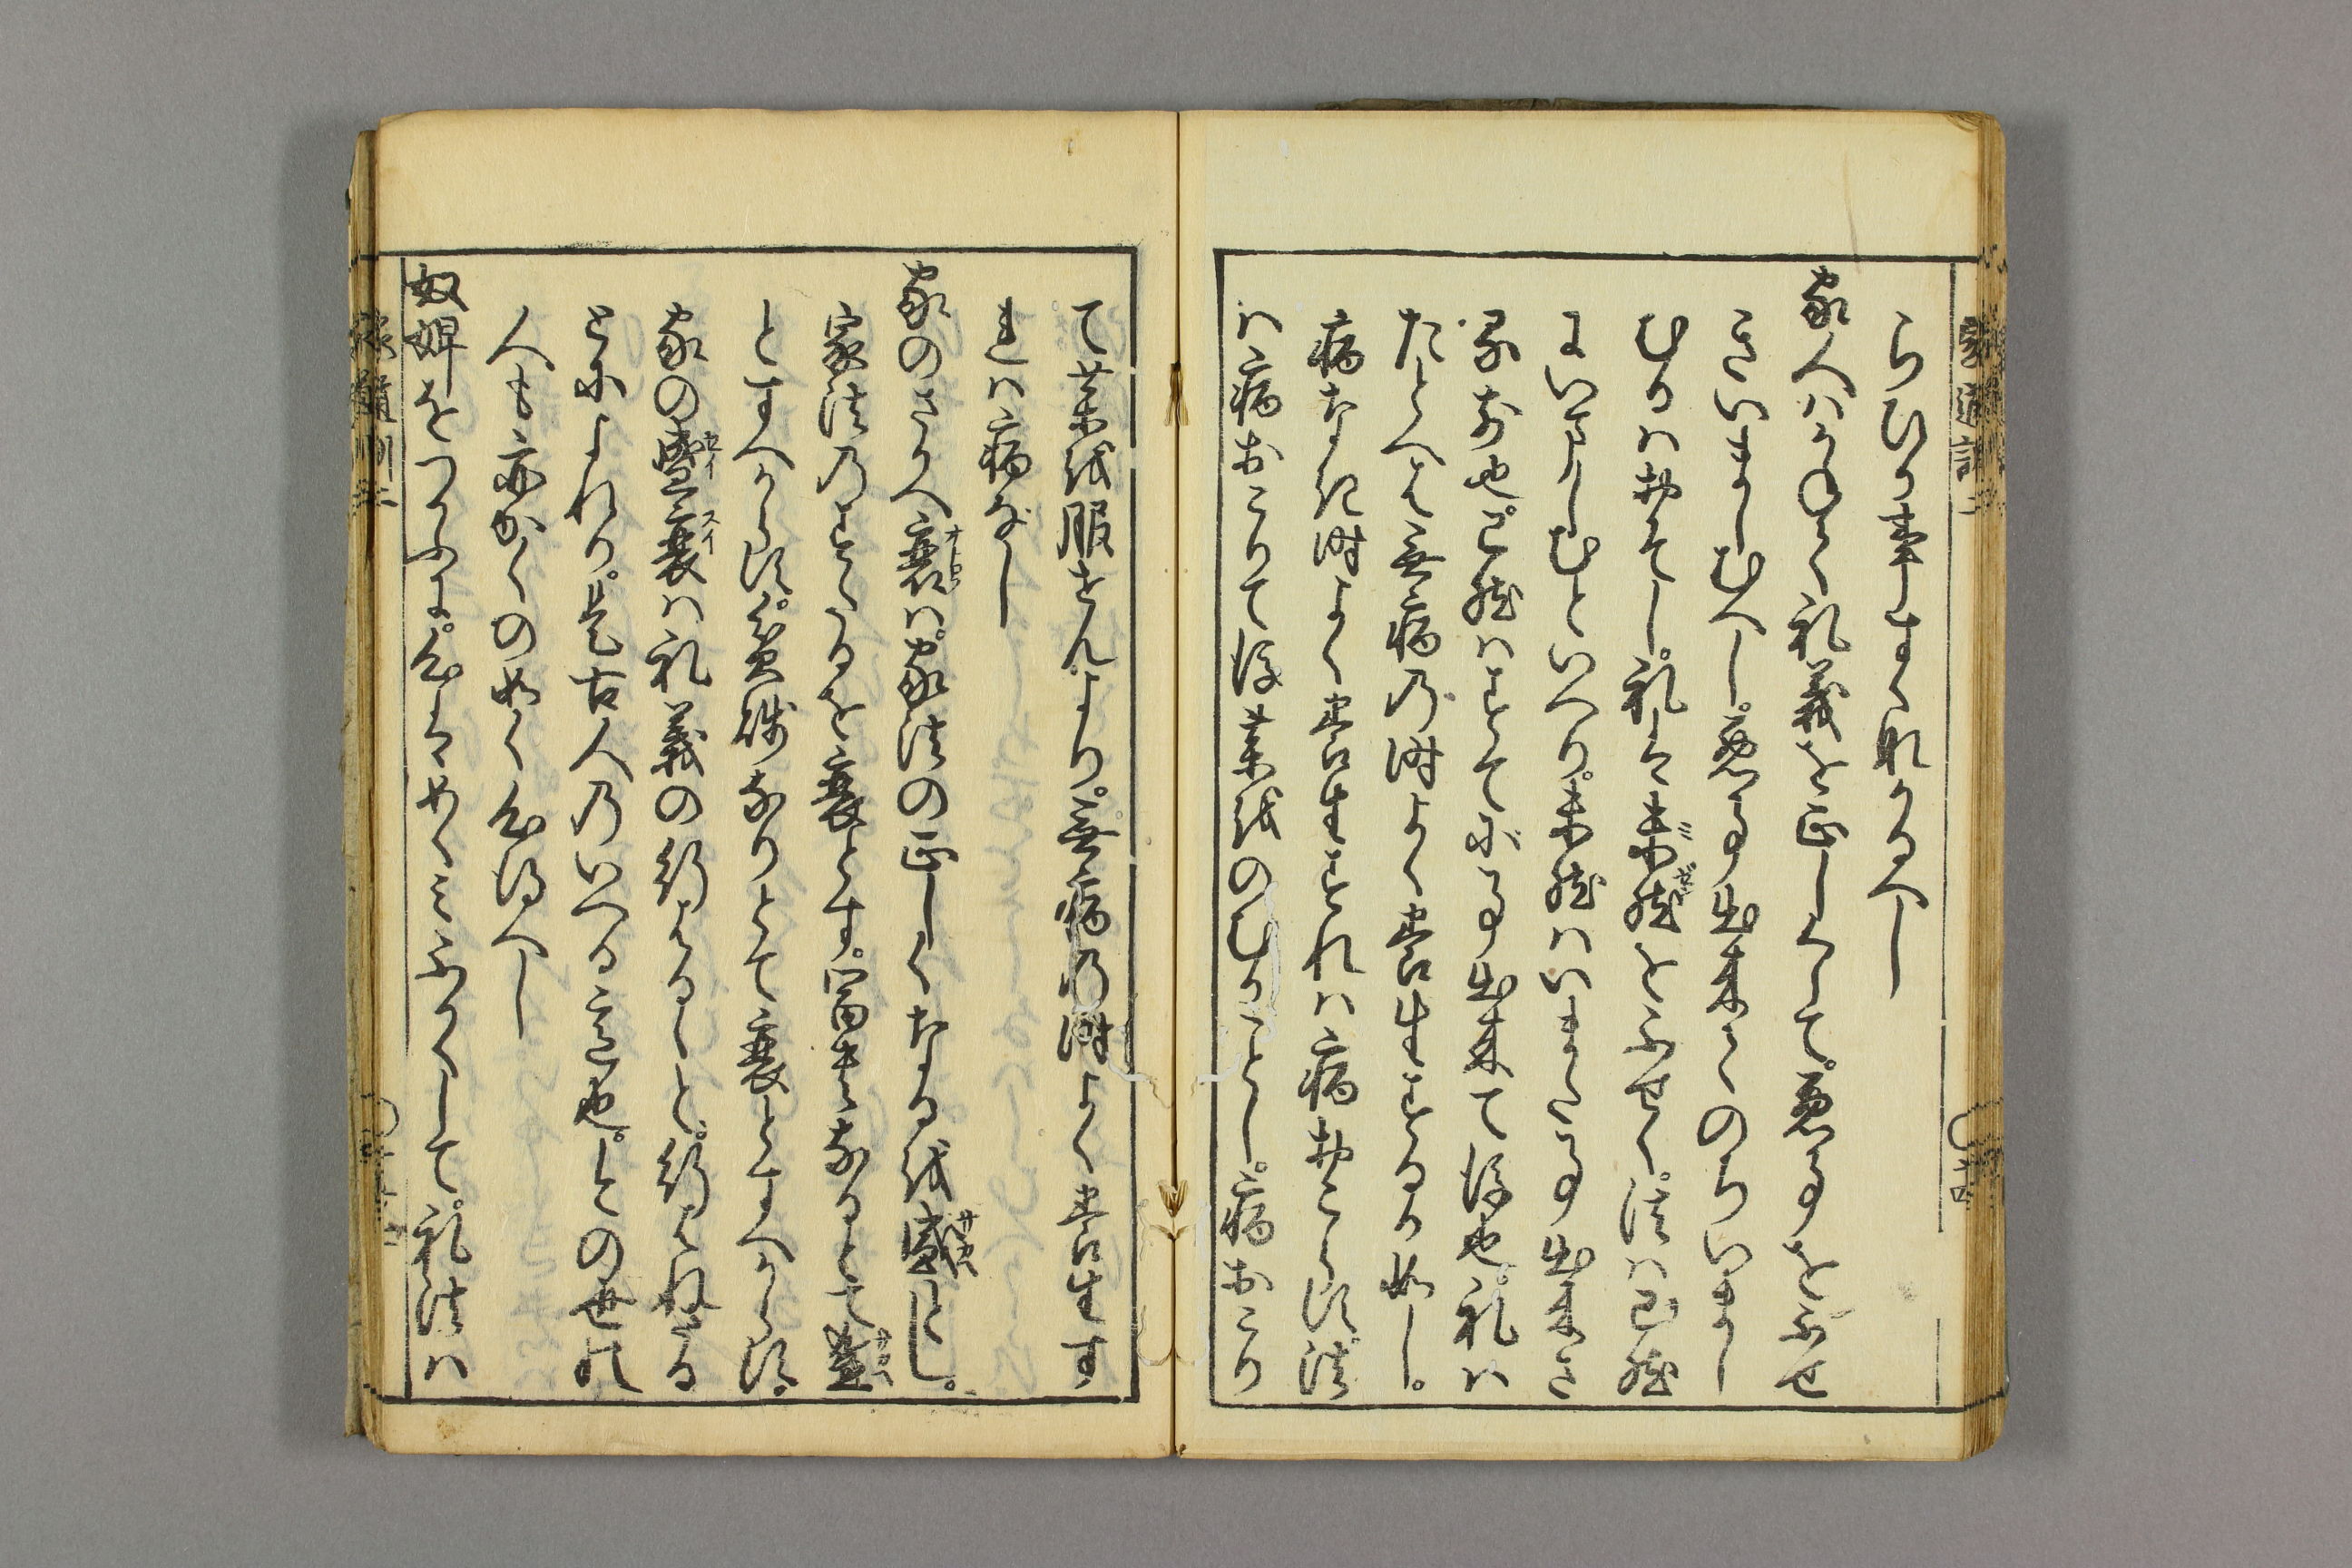 らひの事すく那かるへし
家人ハかねて礼義を正しくして。悪事をふせ
きいましむへし。悪事出来てのちいまし
むるハおそし。礼は未然をふせく。法ハ已然
をいましむといへり。未然ハいまた事出来さ
る前也。已然ハすてに事出来て後也。礼ハ
たとへは無病の時よく養生するか如し。
病なき時よく養生すれハ病おこらす法
ハ病おこりて後薬をのむかことし。病おこり
て薬を服せんより。無病の時よく養生す
れハ病なし
家のさかへ衰ハ。家法の正しくなるを盛とし。
家法のすたるを衰とす。富貴なるとて盛
とすへからす。貧賤なりとて衰とすへからす。
家の盛衰ハ礼義の行はるゝと。行はれさる
とによれり。是古人のいへる意也。今の世の
人も亦かくの如く心得へし
奴婢をつかふに。心はめくみふかくして。礼法ハ
家道訓二